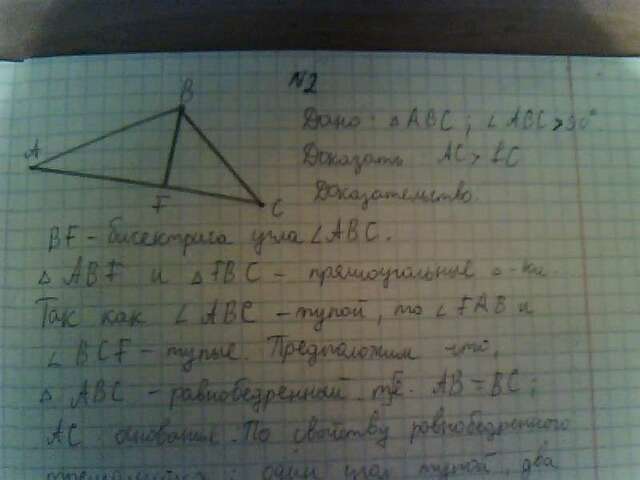 N2
B
Дано: △ABC; ∠ABC > 90°
A
Доказать AC >
Доказательство.
F
C
BF - бисектриса угла ∠ABC.
△ABF и △FBC - прямоугольные △-ки.
Так как ∠ABC - тупой, то ∠FAB и
∠BCF - тупые. Предположим что,
△ABC - равнобедренный. AB = BC;
AC основания. По свойству равнобедренного
один угол тупой, два